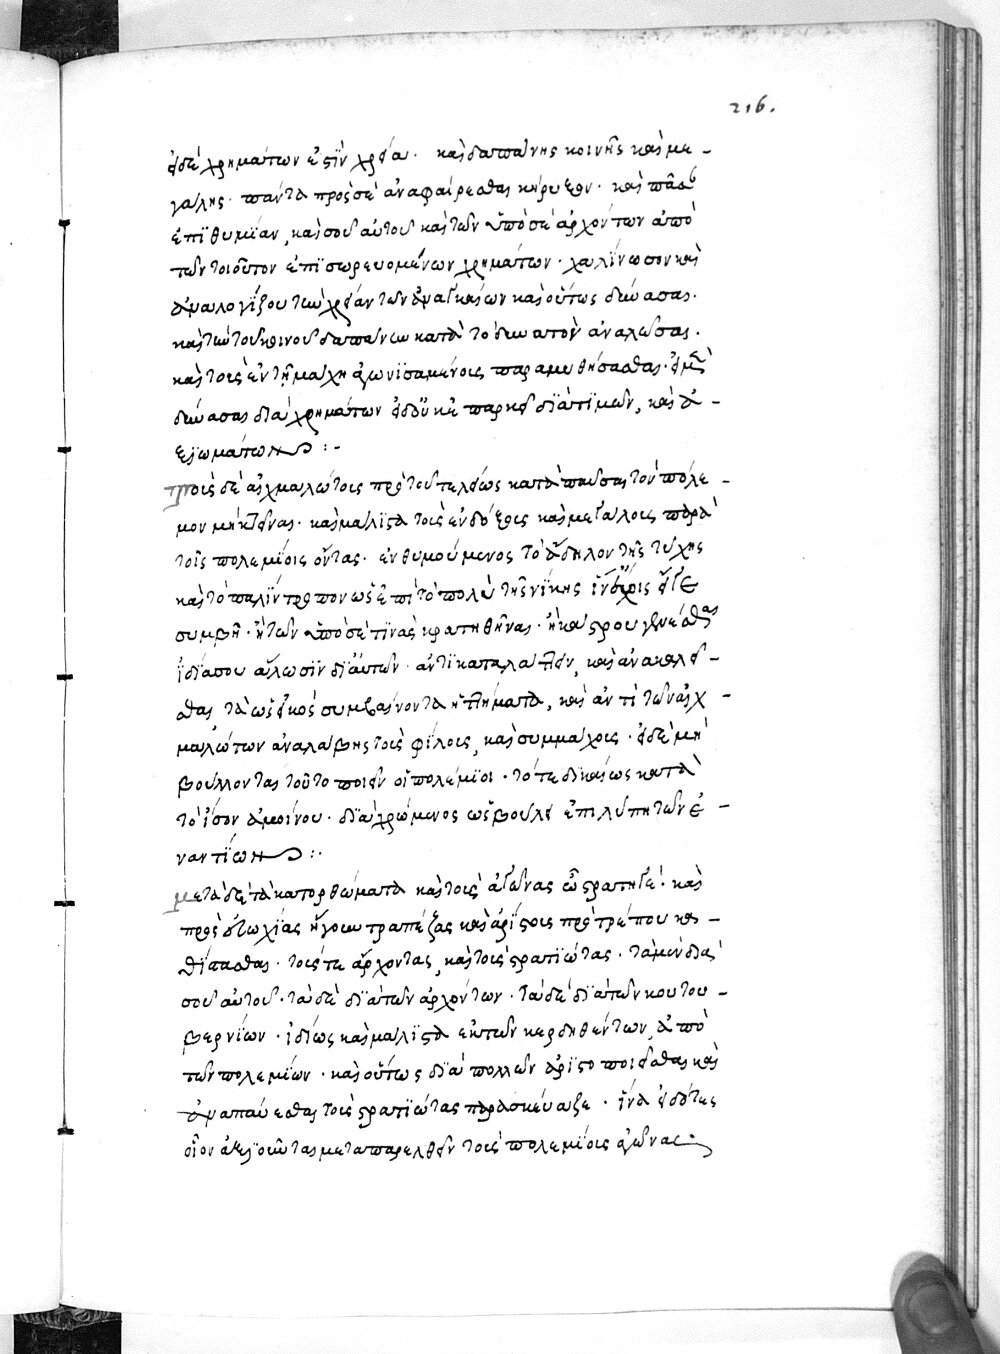 216.
εἰ δὲ χρημάτων ἐστὶν χρεία· καὶ δαπάνης κοινῆς καὶ με-
γάλης· πάντα πρὸς σὲ ἀναφαίρεσθαι κήρυξον· καὶ πᾶσαν
ἐπιθυμίαν, καὶ σοῦ αὐτοῦ καὶ τῶν ὑπὸ σὲ ἀρχόντων ἀπὸ
τῶν τοιούτον ἐπισωρευομένων χρημάτων· χαλίνωσον καὶ
ἀναλογίζου τὴν χρείαν τῶν ἀναγκαίων καὶ οὕτως
καὶ τὴν τοῦ κοινοῦ δαπάνην κατὰ τὸ δυνατὸν ἀναλῶσαι·
καὶ τοῖς ἐν τῇ μάχῃ ἀγωνισαμένοις παραμυθήσασθαι·
διὰ χρημάτων διὰ τιμῶν, καὶ ἀ-
ξιωμάτων :-
τοῖς δὲ αἰχμαλώτοις πρὸ τοῦ τελείως καταπαῦσαι τὸν πόλε-
μον μὴ κτεῖναι· καὶ μάλιστα τοῖς ἐνδόξοις καὶ μεγάλοις παρὰ
τοῖς πολεμίοις ὄντας· ἐνθυμούμενος τὸ ἄδηλον τῆς τύχης
καὶ τὸ παλίντροπον ὡς ἐπὶ τὸ πολὺ τῆς νίκης
συμβῇ· ἢ τῶν ὑπὸ σὲ τινὰς κρατηθῆναι· ἢ κάστρου γενέσθαι
ἰδίου σου ἅλωσιν δι' αὐτῶν· ἀντικαταλάττειν, καὶ ἀνακαλεῖ-
σθαι τὰ ὡς εἰκὸς συμβαίνοντα ἡττήματα, καὶ ἀντὶ τῶν αἰχ-
μαλώτων ἀναλάβῃς τοὺς φίλοις, καὶ συμμάχοις· εἰ δὲ μὴ
βούλλονται τοῦτο ποιεῖν οἱ πολέμιοι· τότε δικαίως κατὰ
τὸ ἴσον ἀμοίνου· διαχρώμενος ὡς βούλει ἐπὶ λύπῃ τῶν ἐ-
ναντίων :·
μετὰ δὲ τὰ κατορθώματα καὶ τοὺς ἀγῶνας ὦ στρατηγέ· καὶ
πρὸς εὐωχίας ἤγουν τραπέζας καὶ ἀρίστοις προτρέπου κα-
θίσασθαι· τούς τε ἄρχοντας, καὶ τοὺς στρατιώτας· τὰ μὲν διὰ
σοῦ αὐτοῦ· τὰ δὲ διὰ τῶν ἀρχόντων· τὰ δὲ διὰ τῶν κουτου-
βερνίων· ἰδίως καὶ μάλιστα ἐκ τῶν κερδηθέντων ἀπὸ
τῶν πολεμίων· καὶ οὕτως διὰ πολλῶν ἀριστοποιεῖσθαι καὶ
ἀναπαύεσθαι τοὺς στρατιώτας παρασκεύαζε· ἵνα εἰδότες
μεταπαρελθεῖν τοὺς πολεμίοις ἀγῶνας